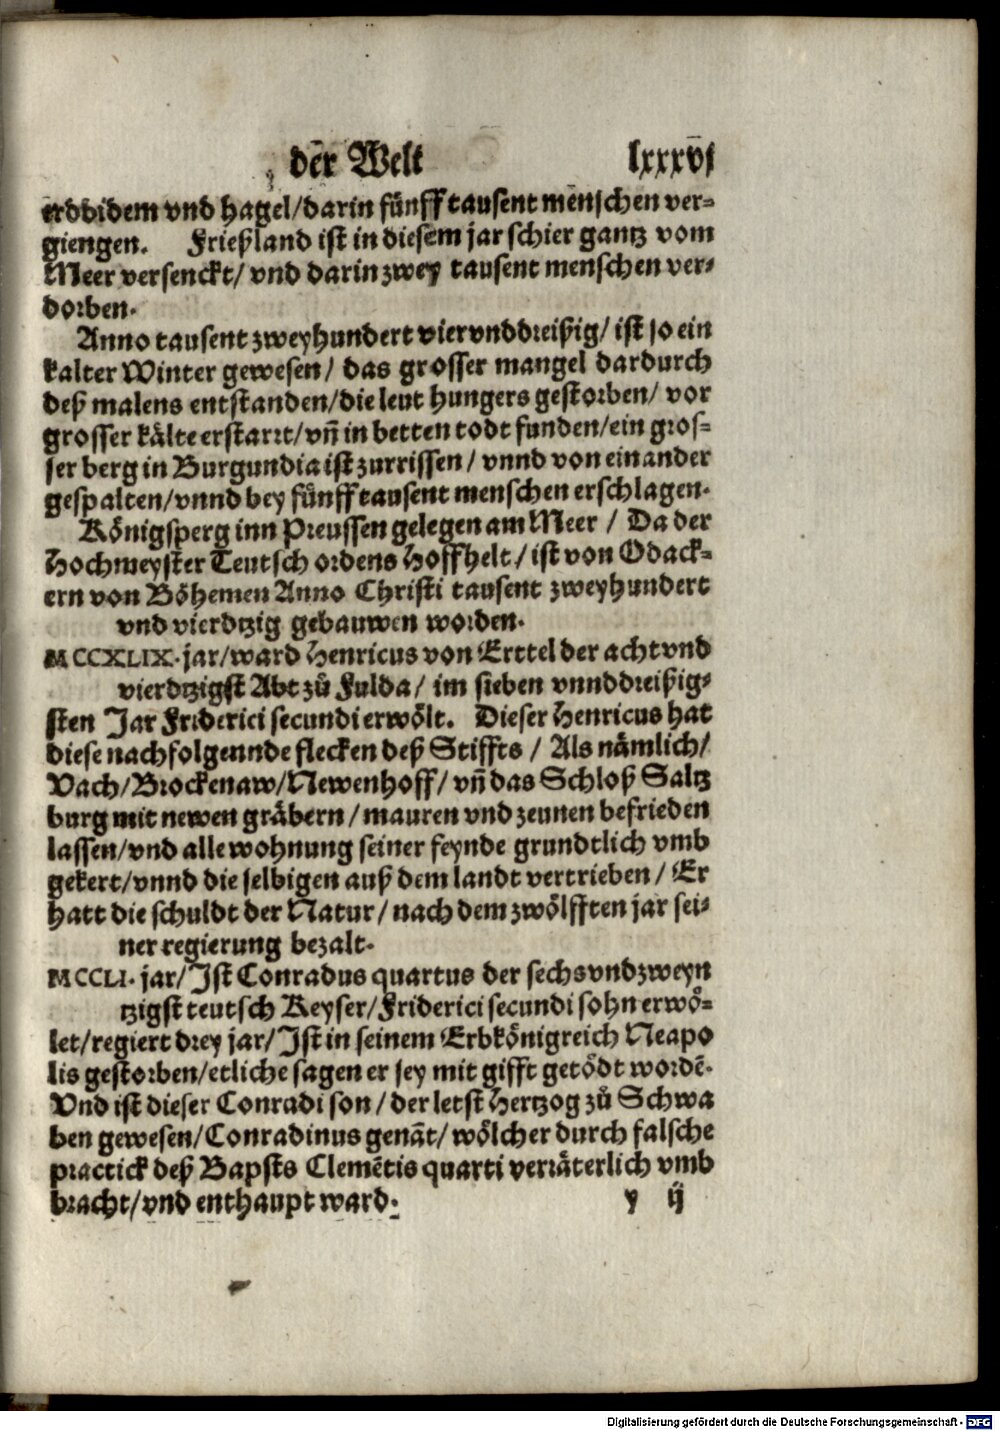 der Welt lxxxvj
erdbidem vnd hagel/darin fünff tausent menschen ver-
giengen. Frießland ist in diesem jar schier gantz vom
Meer versenckt/ vnd darin zwey tausent menschen ver-
dorben.
Anno tausent zweyhundert viervnddreißig/ ist so ein
kalter Winter gewesen/ das grosser mangel dardurch
deß malens entstanden/die leut hungers gestorben/ vor
grosser kälte erstarrt/vñ in betten todt funden/ein gros-
ser berg in Burgundia ist zurrissen/ vnnd von einander
gespalten/vnnd bey fünff tausent menschen erschlagen.
Königsperg inn Preussen gelegen am Meer / Da der
Hochmeyster Teutsch ordens Hoff helt/ ist von Odack-
ern von Böhemen Anno Christi tausent zweyhundert
vnd vierdtzig gebauwen worden.
MCCXLIX. jar/ward Henricus von Erttel der acht vnd
vierdtzigst Abt zů Fulda/ im sieben vnnddreißig-
sten Jar Friderici secundi erwölt. Dieser Henricus hat
diese nachfolgennde flecken deß Stiffts / Als nämlich/
Vach/Brockenaw/Newenhoff/ vñ das Schloß Saltz
burg mit newen gräbern/ mauren vnd zeunen befrieden
lassen/vnd alle wohnung seiner feynde grundtlich vmb
gekert/vnnd die selbigen auß dem landt vertrieben/ Er
hatt die schuldt der Natur/ nach dem zwölfften jar sei-
ner regierung bezalt.
MCCLI. jar/ Ist Conradus quartus der sechsvndzweyn
tzigst teutsch Keyser/Friderici secundi sohn erwö-
let/regiert drey jar/Ist in seinem Erbkönigreich Neapo
lis gestorben/etliche sagen er sey mit gifft getödt wordē.
Vnd ist dieser Conradi son/ der letst Hertzog zů Schwa
ben gewesen/Conradinus genāt/ wölcher durch falsche
practick deß Bapsts Clemētis quarti verräterlich vmb
bracht/vnd enthaupt ward.
y ij
Digitalisierung gefördert durch die Deutsche Forschungsgemeinschaft - DFG